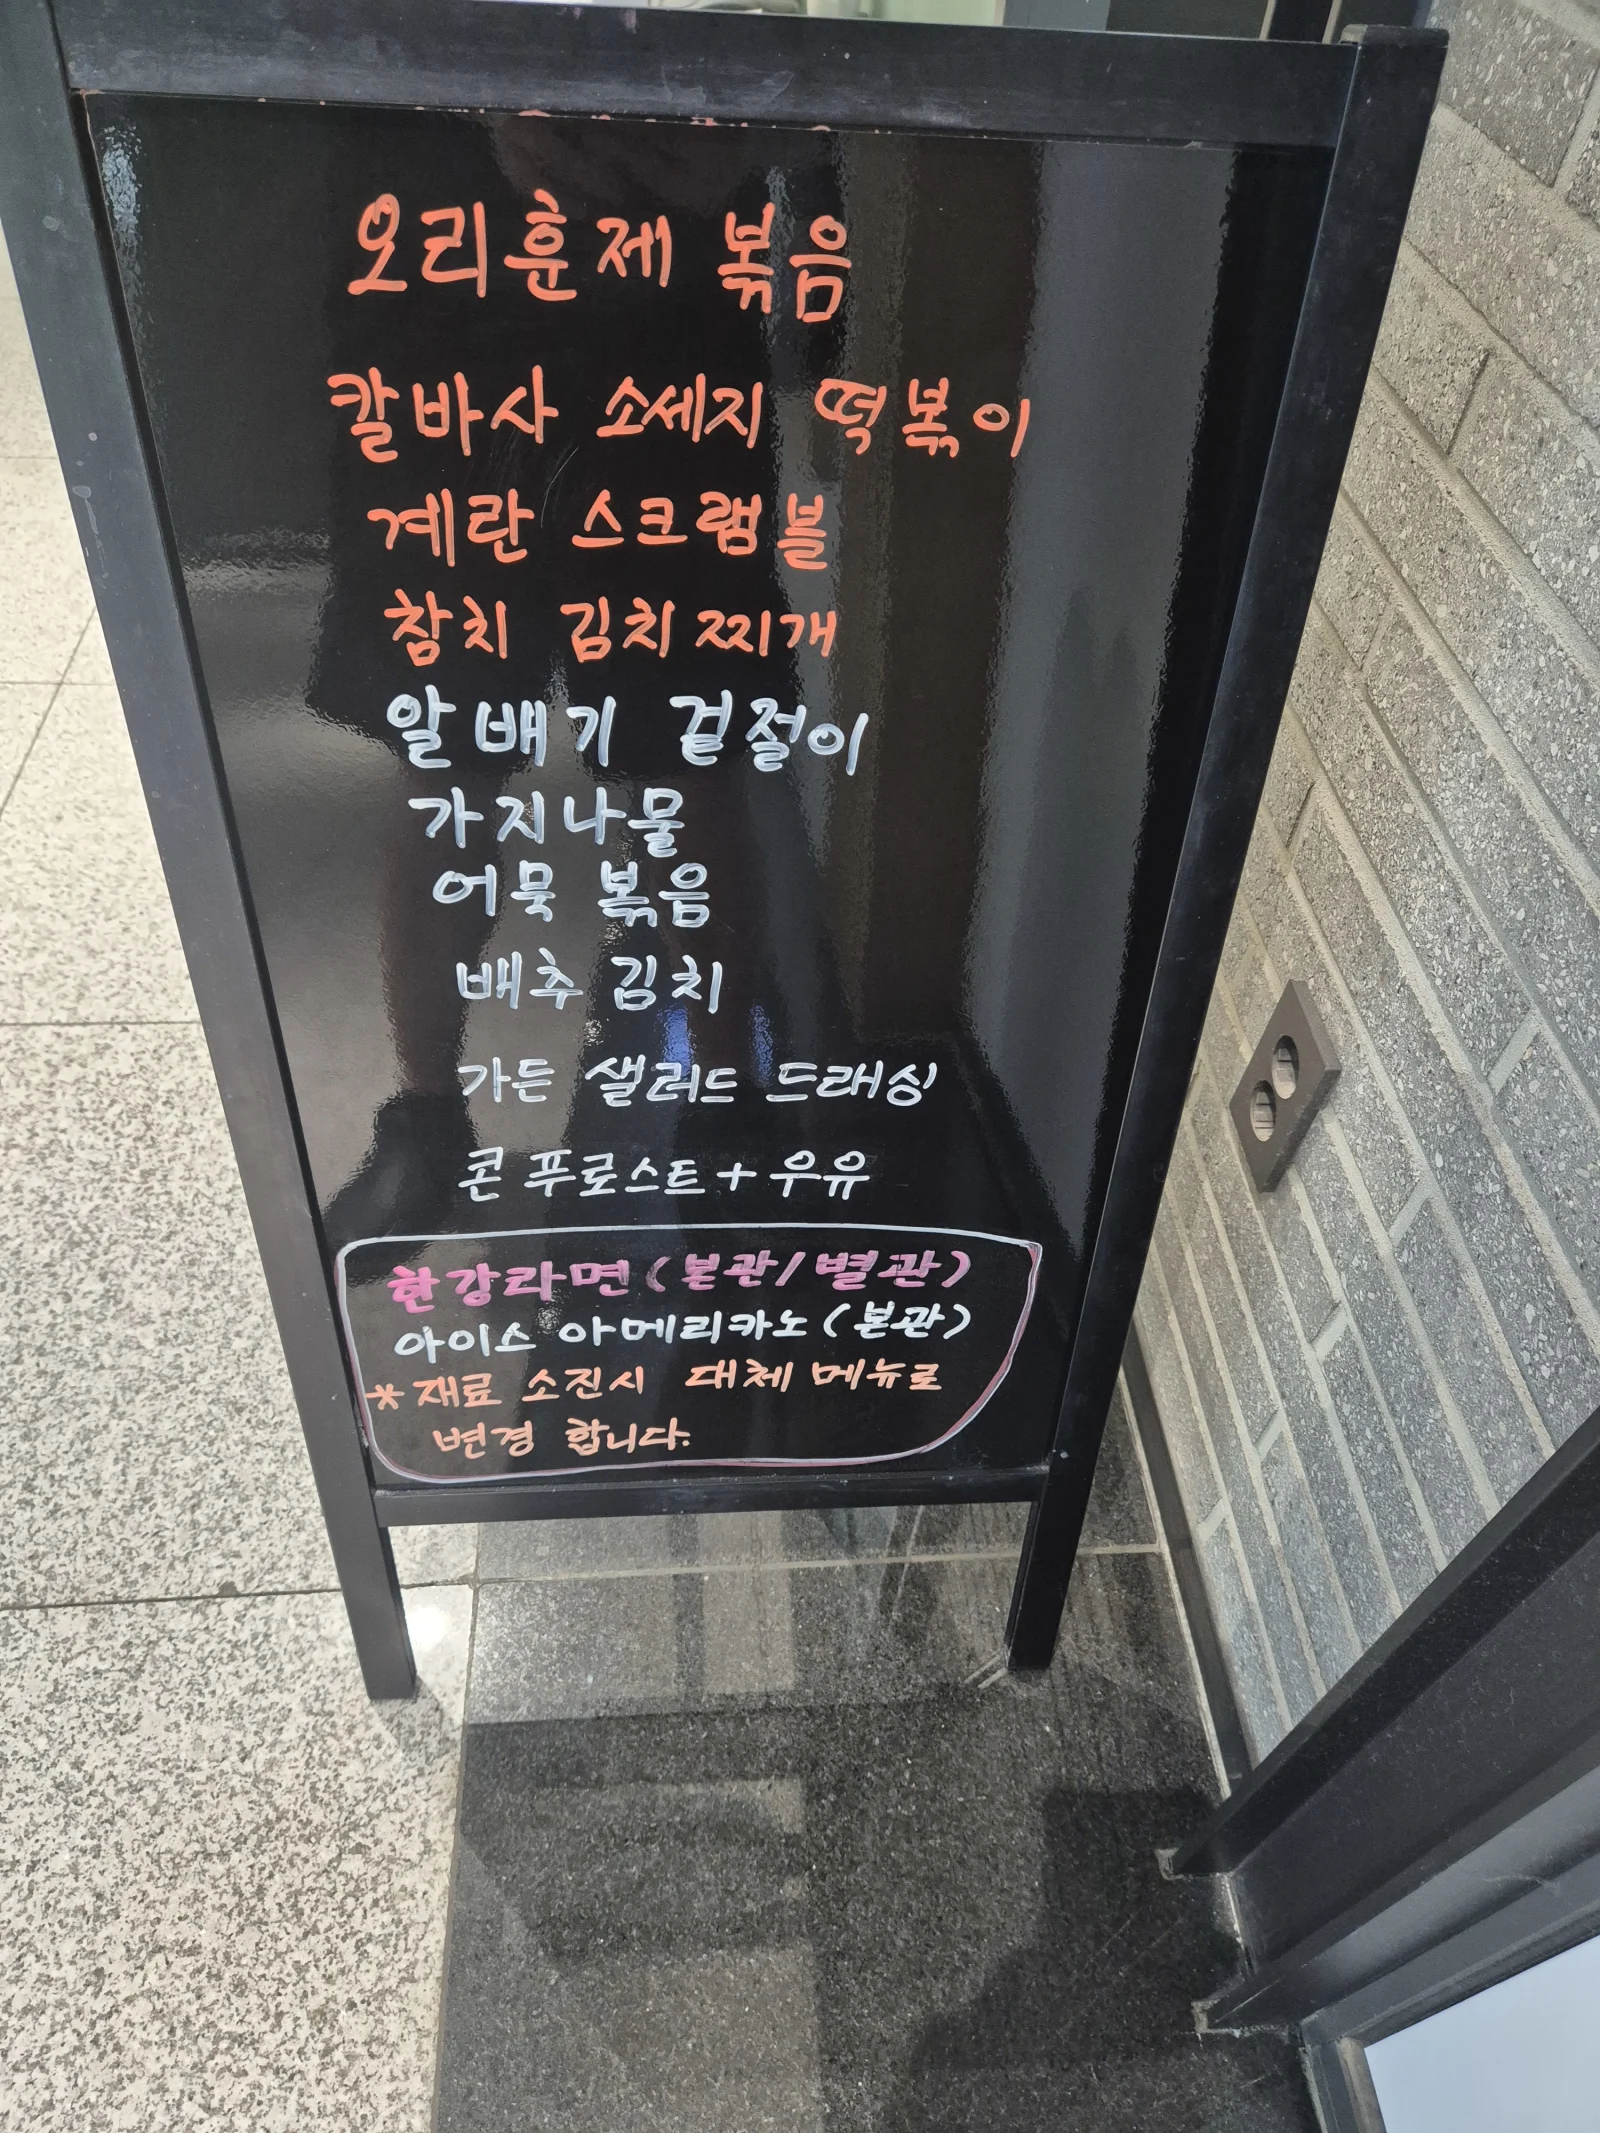 오리훈제 볶음
칼바사 소세지 떡볶이
계란 스크램블
참치 김치찌개
알배기 겉절이
가지나물
어묵 볶음
배추 김치
가든 샐러드 드래싱
콘 푸로스트+우유
한강라면(본관/별관)
아이스 아메리카노(본관)
*재료 소진시 대체 메뉴로
변경 합니다.